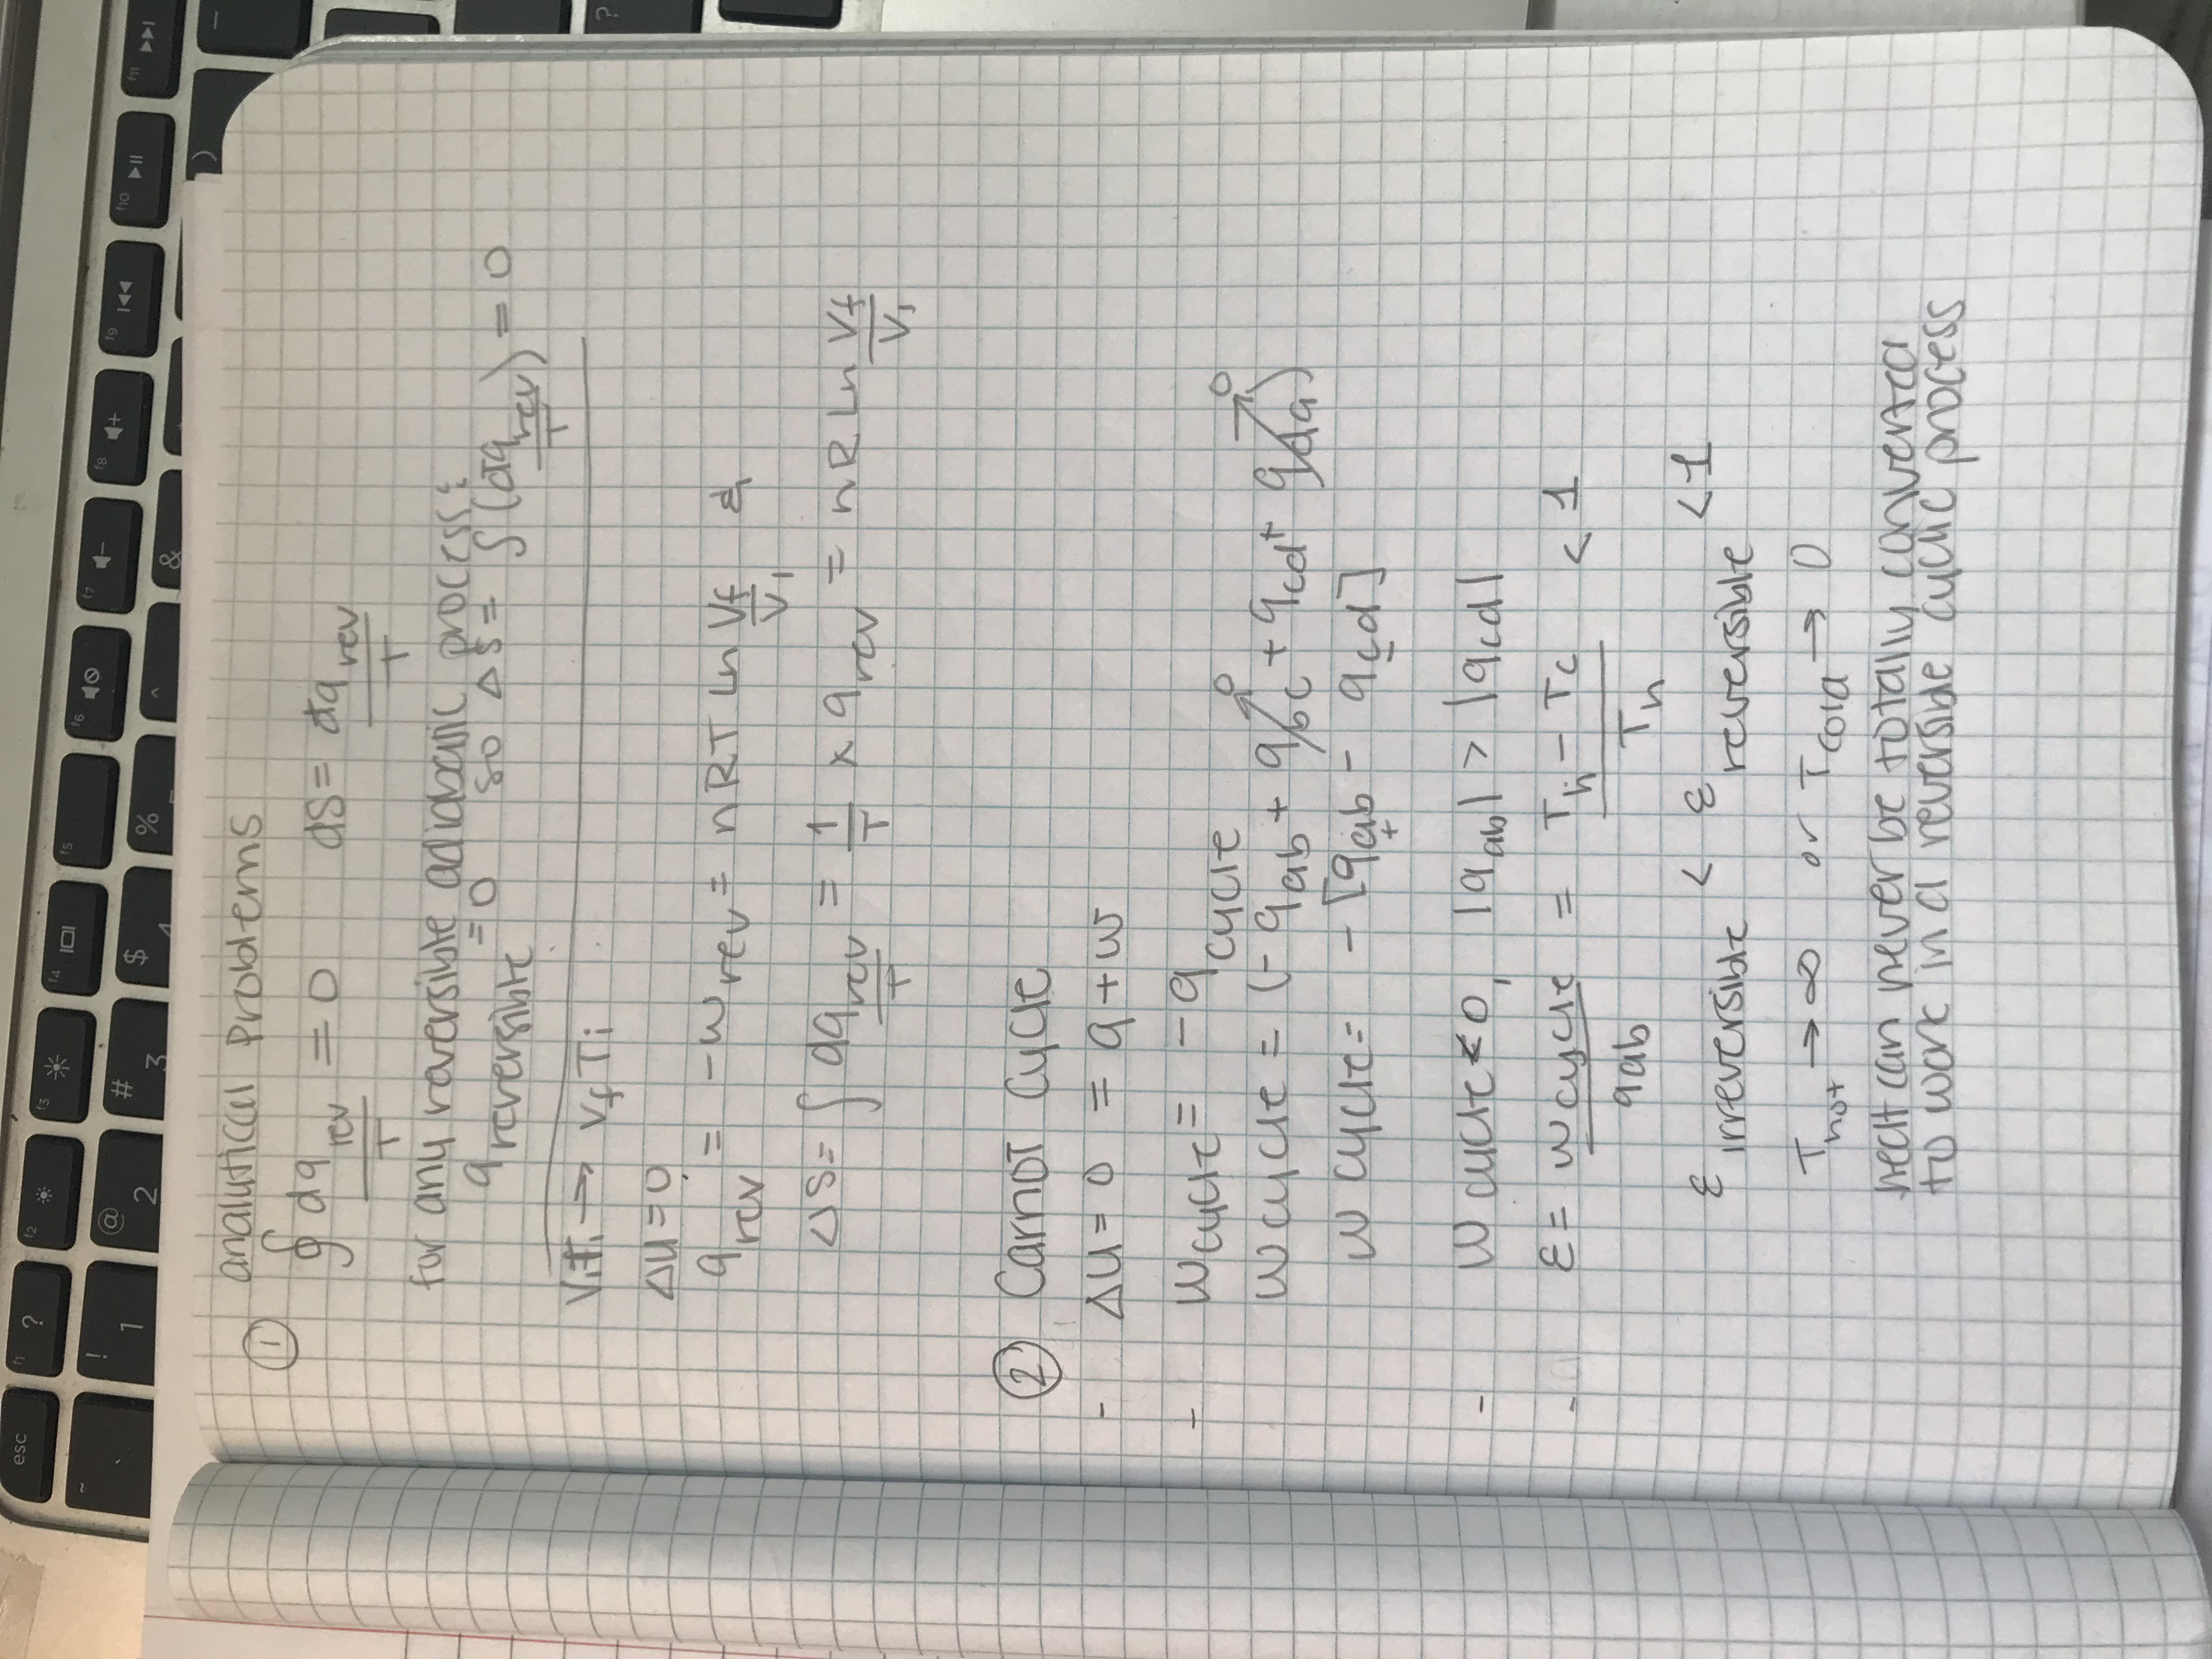 esc f1 ? f2 f3 f4 f5 f6 f7 f8 f9 f10 f11
~ ` ! 1 @ 2 # 3 $ 4 % ^ & )
?
analytical problems
① ∮ dq_rev/T = 0 dS = đq_rev/T
for any reversible adiabatic process:
q_reversible = 0 so ΔS = ∫(đq_rev/T) = 0
V_i T_i → V_f T_i
ΔU = 0
q_rev = -w_rev = nRT Ln V_f/V_i &
ΔS = ∫ dq_rev/T = 1/T × q_rev = nR Ln V_f/V_i
② Carnot Cycle
- ΔU = 0 = q + w
- w_cycle = -q_cycle
w_cycle = (- q_ab + q_bc→0 + q_cd + q_da→0)
w cycle = - [q_ab - q_cd]
+ -
- w cycle < 0, |q_ab| > |q_cd|
- ε = w cycle/q_ab = T_h - T_c/T_h < 1
ε irreversible < ε reversible < 1
T_hot → ∞ or T_cold → 0
heat can never be totally converted
to work in a reversible cyclic process